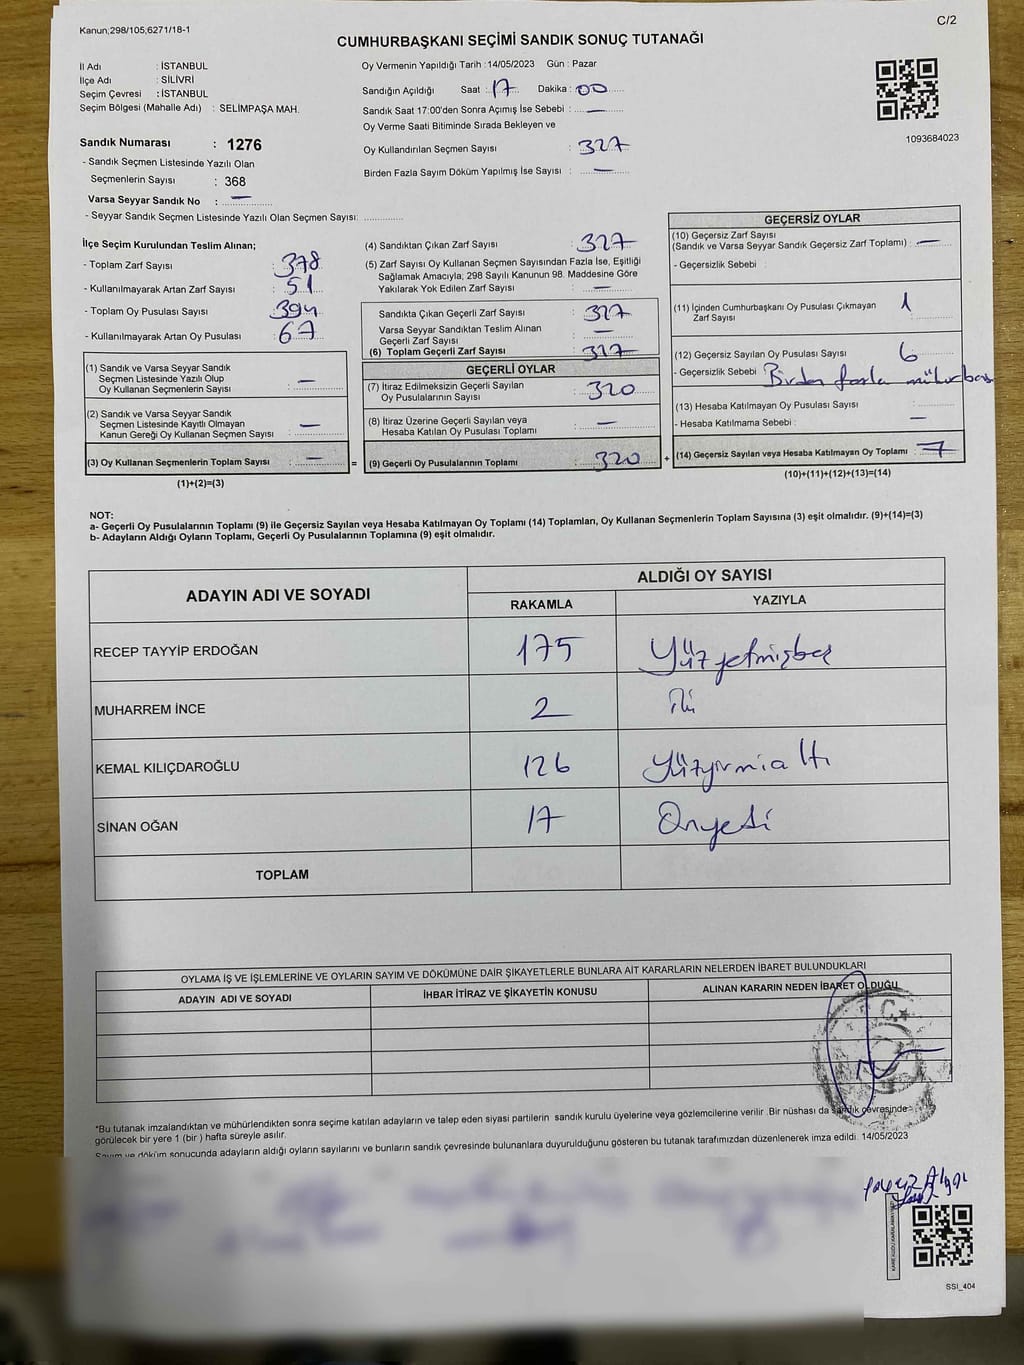 Kanun;298/105;6271/18-1
C/2
CUMHURBAŞKANI SEÇİMİ SANDIK SONUÇ TUTANAĞI
İl Adı : İSTANBUL
İlçe Adı : SİLİVRİ
Seçim Çevresi : İSTANBUL
Seçim Bölgesi (Mahalle Adı) : SELİMPAŞA MAH.
Sandık Numarası : 1276
- Sandık Seçmen Listesinde Yazılı Olan
Seçmenlerin Sayısı : 368
Varsa Seyyar Sandık No : —
- Seyyar Sandık Seçmen Listesinde Yazılı Olan Seçmen Sayısı: ............
Oy Vermenin Yapıldığı Tarih :14/05/2023 Gün : Pazar
Sandığın Açıldığı Saat : 17 Dakika : 00
Sandık Saat 17:00'den Sonra Açımış İse Sebebi : —
Oy Verme Saati Bitiminde Sırada Bekleyen ve
Oy Kullandırılan Seçmen Sayısı : 327
Birden Fazla Sayım Döküm Yapılmış İse Sayısı : —
1093684023
İlçe Seçim Kurulundan Teslim Alınan;
- Toplam Zarf Sayısı : 378
- Kullanılmayarak Artan Zarf Sayısı : 51
- Toplam Oy Pusulası Sayısı : 394
- Kullanılmayarak Artan Oy Pusulası : 67
(1) Sandık ve Varsa Seyyar Sandık
Seçmen Listesinde Yazılı Olup
Oy Kullanan Seçmenlerin Sayısı : —
(2) Sandık ve Varsa Seyyar Sandık
Seçmen Listesinde Kayıtlı Olmayan
Kanun Gereği Oy Kullanan Seçmen Sayısı : —
(3) Oy Kullanan Seçmenlerin Toplam Sayısı : —
(1)+(2)=(3)
=
(4) Sandıktan Çıkan Zarf Sayısı : 327
(5) Zarf Sayısı Oy Kullanan Seçmen Sayısından Fazla İse, Eşitliği
Sağlamak Amacıyla; 298 Sayılı Kanunun 98. Maddesine Göre
Yakılarak Yok Edilen Zarf Sayısı : —
Sandıkta Çıkan Geçerli Zarf Sayısı : 327
Varsa Seyyar Sandıktan Teslim Alınan
Geçerli Zarf Sayısı : —
(6) Toplam Geçerli Zarf Sayısı : 327
GEÇERLİ OYLAR
(7) İtiraz Edilmeksizin Geçerli Sayılan
Oy Pusulalarının Sayısı : 320
(8) İtiraz Üzerine Geçerli Sayılan veya
Hesaba Katılan Oy Pusulası Toplamı : —
(9) Geçerli Oy Pusulalarının Toplamı : 320
+
GEÇERSİZ OYLAR
(10) Geçersiz Zarf Sayısı
(Sandık ve Varsa Seyyar Sandık Geçersiz Zarf Toplamı) : —
- Geçersizlik Sebebi :
(11) İçinden Cumhurbaşkanı Oy Pusulası Çıkmayan
Zarf Sayısı : 1
(12) Geçersiz Sayılan Oy Pusulası Sayısı : 6
- Geçersizlik Sebebi : Birden fazla mühür bas
(13) Hesaba Katılmayan Oy Pusulası Sayısı : —
- Hesaba Katılmama Sebebi : —
(14) Geçersiz Sayılan veya Hesaba Katılmayan Oy Toplamı : 7
(10)+(11)+(12)+(13)=(14)
NOT:
a- Geçerli Oy Pusulalarının Toplamı (9) ile Geçersiz Sayılan veya Hesaba Katılmayan Oy Toplamı (14) Toplamları, Oy Kullanan Seçmenlerin Toplam Sayısına (3) eşit olmalıdır. (9)+(14)=(3)
b- Adayların Aldığı Oyların Toplamı, Geçerli Oy Pusulalarının Toplamına (9) eşit olmalıdır.
ADAYIN ADI VE SOYADI ALDIĞI OY SAYISI
RAKAMLA YAZIYLA
RECEP TAYYİP ERDOĞAN 175 Yüzyetmişbeş
MUHARREM İNCE 2 İki
KEMAL KILIÇDAROĞLU 126 Yüzyirmialtı
SİNAN OĞAN 17 Onyedi
TOPLAM
OYLAMA İŞ VE İŞLEMLERİNE VE OYLARIN SAYIM VE DÖKÜMÜNE DAİR ŞİKAYETLERLE BUNLARA AİT KARARLARIN NELERDEN İBARET BULUNDUKLARI
ADAYIN ADI VE SOYADI İHBAR İTİRAZ VE ŞİKAYETİN KONUSU ALINAN KARARIN NEDEN İBARET OLDUĞU
T.C.
*Bu tutanak imzalandıktan ve mühürlendikten sonra seçime katılan adayların ve talep eden siyasi partilerin sandık kurulu üyelerine veya gözlemcilerine verilir .Bir nüshası da sandık çevresinde
görülecek bir yere 1 (bir ) hafta süreyle asılır.
Sayım ve döküm sonucunda adayların aldığı oyların sayılarını ve bunların sandık çevresinde bulunanlara duyurulduğunu gösteren bu tutanak tarafımızdan düzenlenerek imza edildi. 14/05/2023
SSI_404